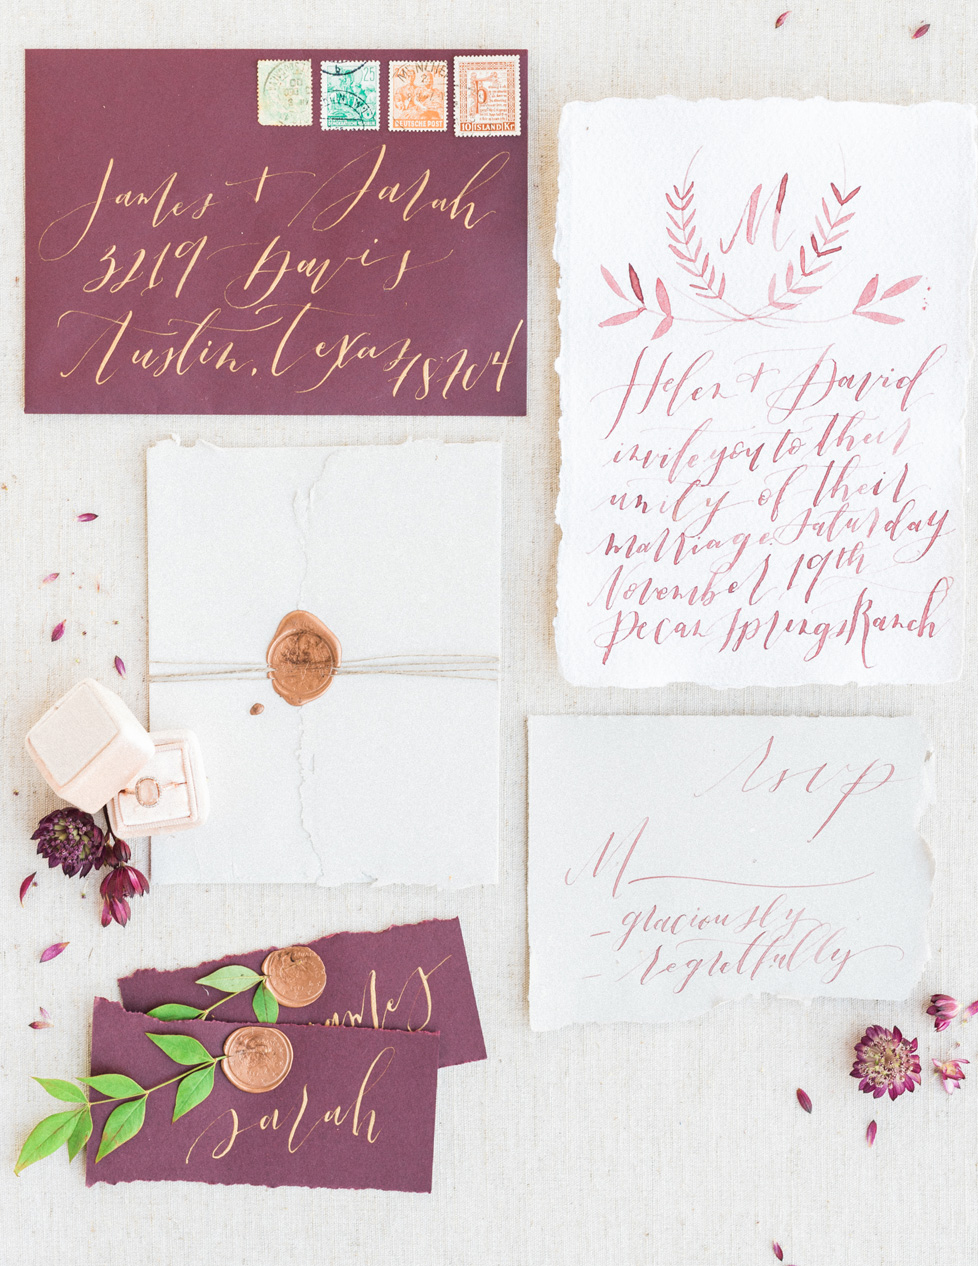 25
MÜNCHEN
2
DEUTSCHE POST
10 ISLAND Kr
James + Sarah
3219 Davis
Austin, Texas 78704
M
Helen + David
invite you to their
unity of their
marriage. Saturday
November 19th
Pecan Springs Ranch
rsvp
M
– graciously
– regretfully
James
Sarah